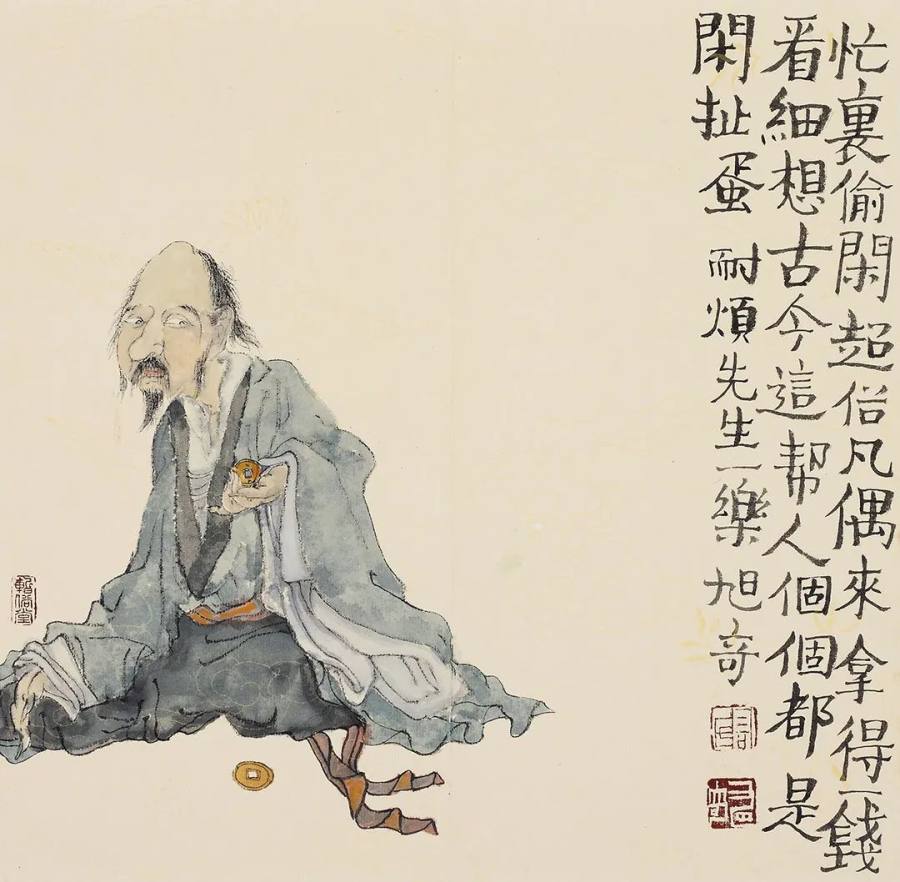 忙裏偷閑超俗凡偶來拿得一錢
看細想古今這帮人個個都是
閑扯蛋 耐煩先生一樂 旭奇